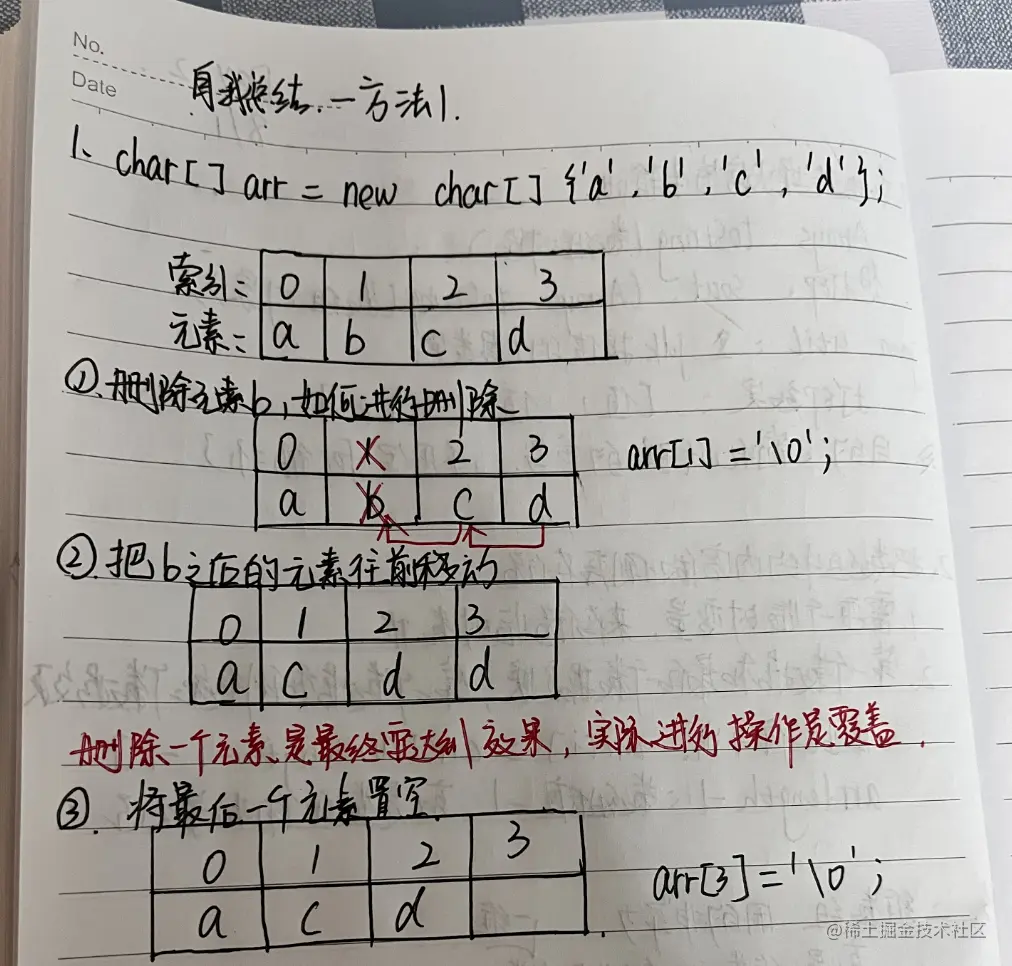 No.
Date
自我总结.一方法1.
1、char[] arr = new char[] {'a','b','c','d'};
索引: 0 1 2 3
元素: a b c d
①.删除元素b,如何进行删除
0 1 2 3 arr[1] = '\0';
a b c d
②.把b之后的元素往前移动
0 1 2 3
a c d d
删除一个元素是最终要达到效果,实际进行操作是覆盖.
③.将最后一个元素置空
0 1 2 3
a c d arr[3]='\0';
@稀土掘金技术社区